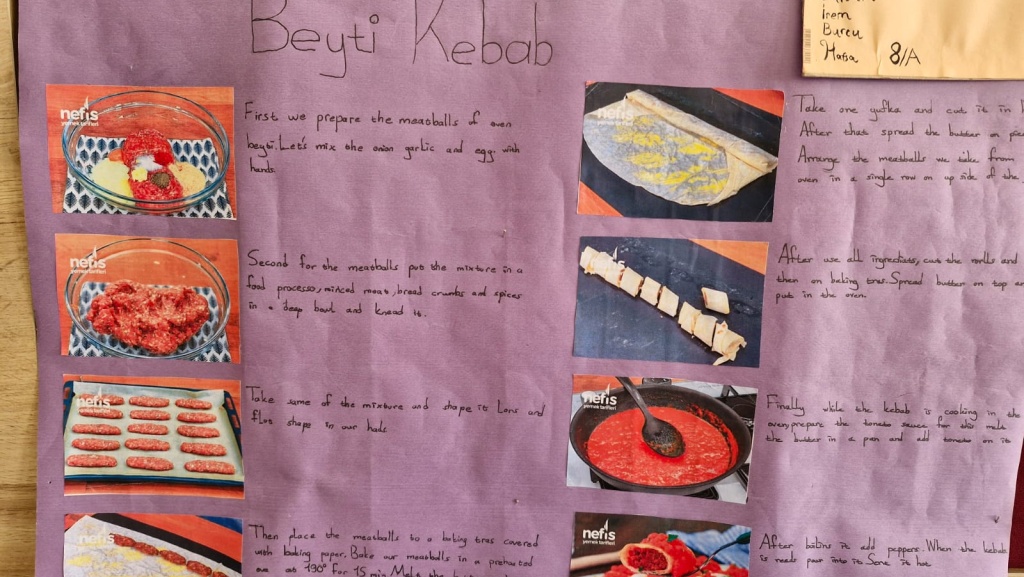 Beyti Kebab
İrem
Burcu
Hafsa 8/A
nefis
yemek tarifleri
First we prepare the meatballs of oven
beyti. Let's mix the onion garlic and egg with
hands.
nefis
yemek tarifleri
Second for the meatballs put the mixture in a
food processo, minced meat, bread crumbs and spices
in a deep bowl and knead it.
nefis
yemek tarifleri
Take some of the mixture and shape it Lons and
flat shape in our hads
nefis
yemek tarifleri
Then place the meatballs to a baking tres covered
with baking paper. Bake our meatballs in a preheated
ove at 190° For 15 min. Melt the
nefis
yemek tarifleri
Take one yufka and cut it in
After that spread the butter on
Arrange the meatballs we take from
oven in a single row on up side of the
nefis
yemek tarifleri
After use all ingredients, cut the rolls and
then on baking tres. Spread butter on top
put in the oven.
nefis
yemek tarifleri
Finally while the kebab is cooking in the
oven, prepare the tomato sauce for this melt
the butter in a pan and add tomato on it
nefis
yemek tarifleri
After boilins it add peppers. When the kebab
is ready pour into it. Serve it hot